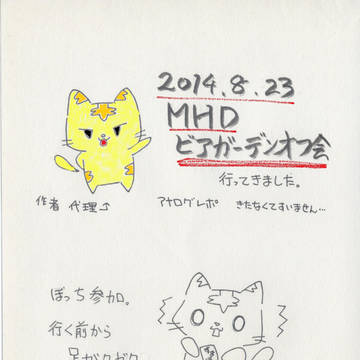 2014.8.23
MHD
ビアガーデンオフ会
行ってきました。
作者 代理⤴
アナログレポ きたなくてすいません…
ぼっち参加。
行く前から
足がクガク